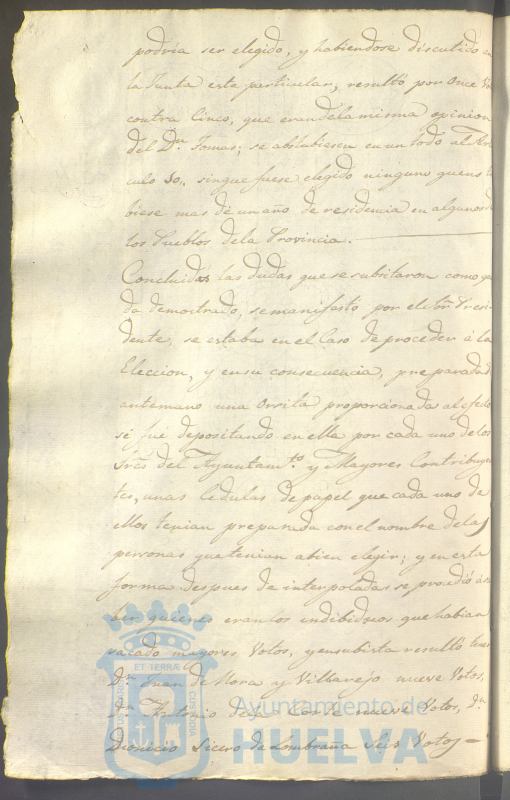 podria ser elegido, y habiendose discutido en
la Junta este particular, resultó por Once Vo
contra Cinco, que eran dela misma opinion
del Dn. Tomas; se abstubiesen en un todo al Arti
culo 30., sin que fuese elegido ninguno que no tu
biese mas de un año de residencia en algunos de
los Pueblos dela Provincia.
Concluidas las dudas que se subsitaron como que
da demostrado, se manifestó por el Sor. Presi
dente, se estaba en el Caso de proceder á la
Eleccion, y en su consecuencia, preparada d
antemano una Ornita proporcionada al efecto
se fué depositando en ella por cada uno delos
Sres. del Ayuntamto. y Mayores Contribuyen
tes, unas Cedulas de papel que cada uno de
ellos tenian preparada con el nombre delas
personas que tenian abien elegir; y en esta
forma despues de interpoladas se procedió á sa
ber quienes eran los indibiduos que habian
sacado mayores Votos, y en su bista resultó tener
Dn. Juan de Mora y Villarejo nueve Votos,
Dn. Antonio dela Corte nueve Votos, Dn.
Dionicio Sicero da Lombraña Seis Votos =
ET TERRÆ
CUSTODIA
Ayuntamiento de
HUELVA